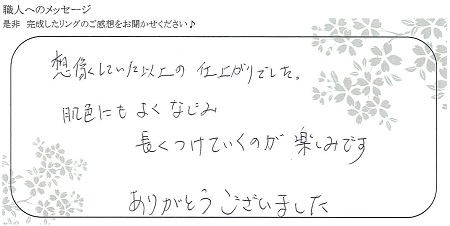 職人へのメッセージ
是非 完成したリングのご感想をお聞かせください♪
想像していた以上の 仕上がりでした。
肌色にも よく なじみ
長くつけていくのが 楽しみです
ありがとう ございました